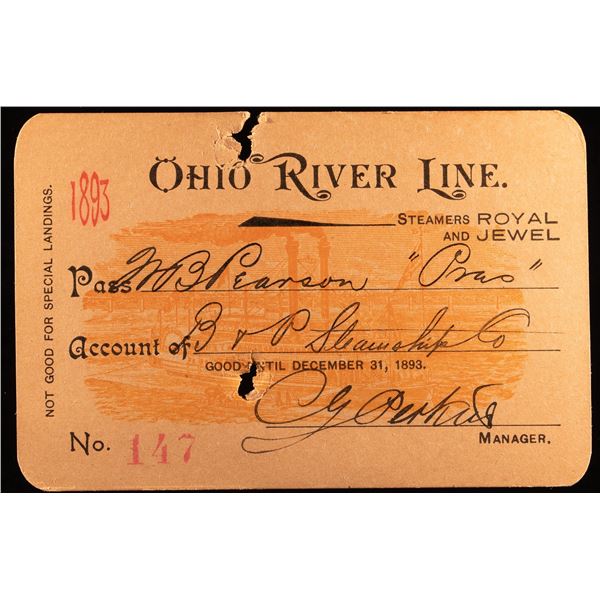 OHIO RIVER LINE.
1893
STEAMERS ROYAL
AND JEWEL
NOT GOOD FOR SPECIAL LANDINGS.
Pass W B Pearson "Pras"
Account of B & P Steamship Co
GOOD UNTIL DECEMBER 31, 1893.
C G Perkins
No. 147
MANAGER.